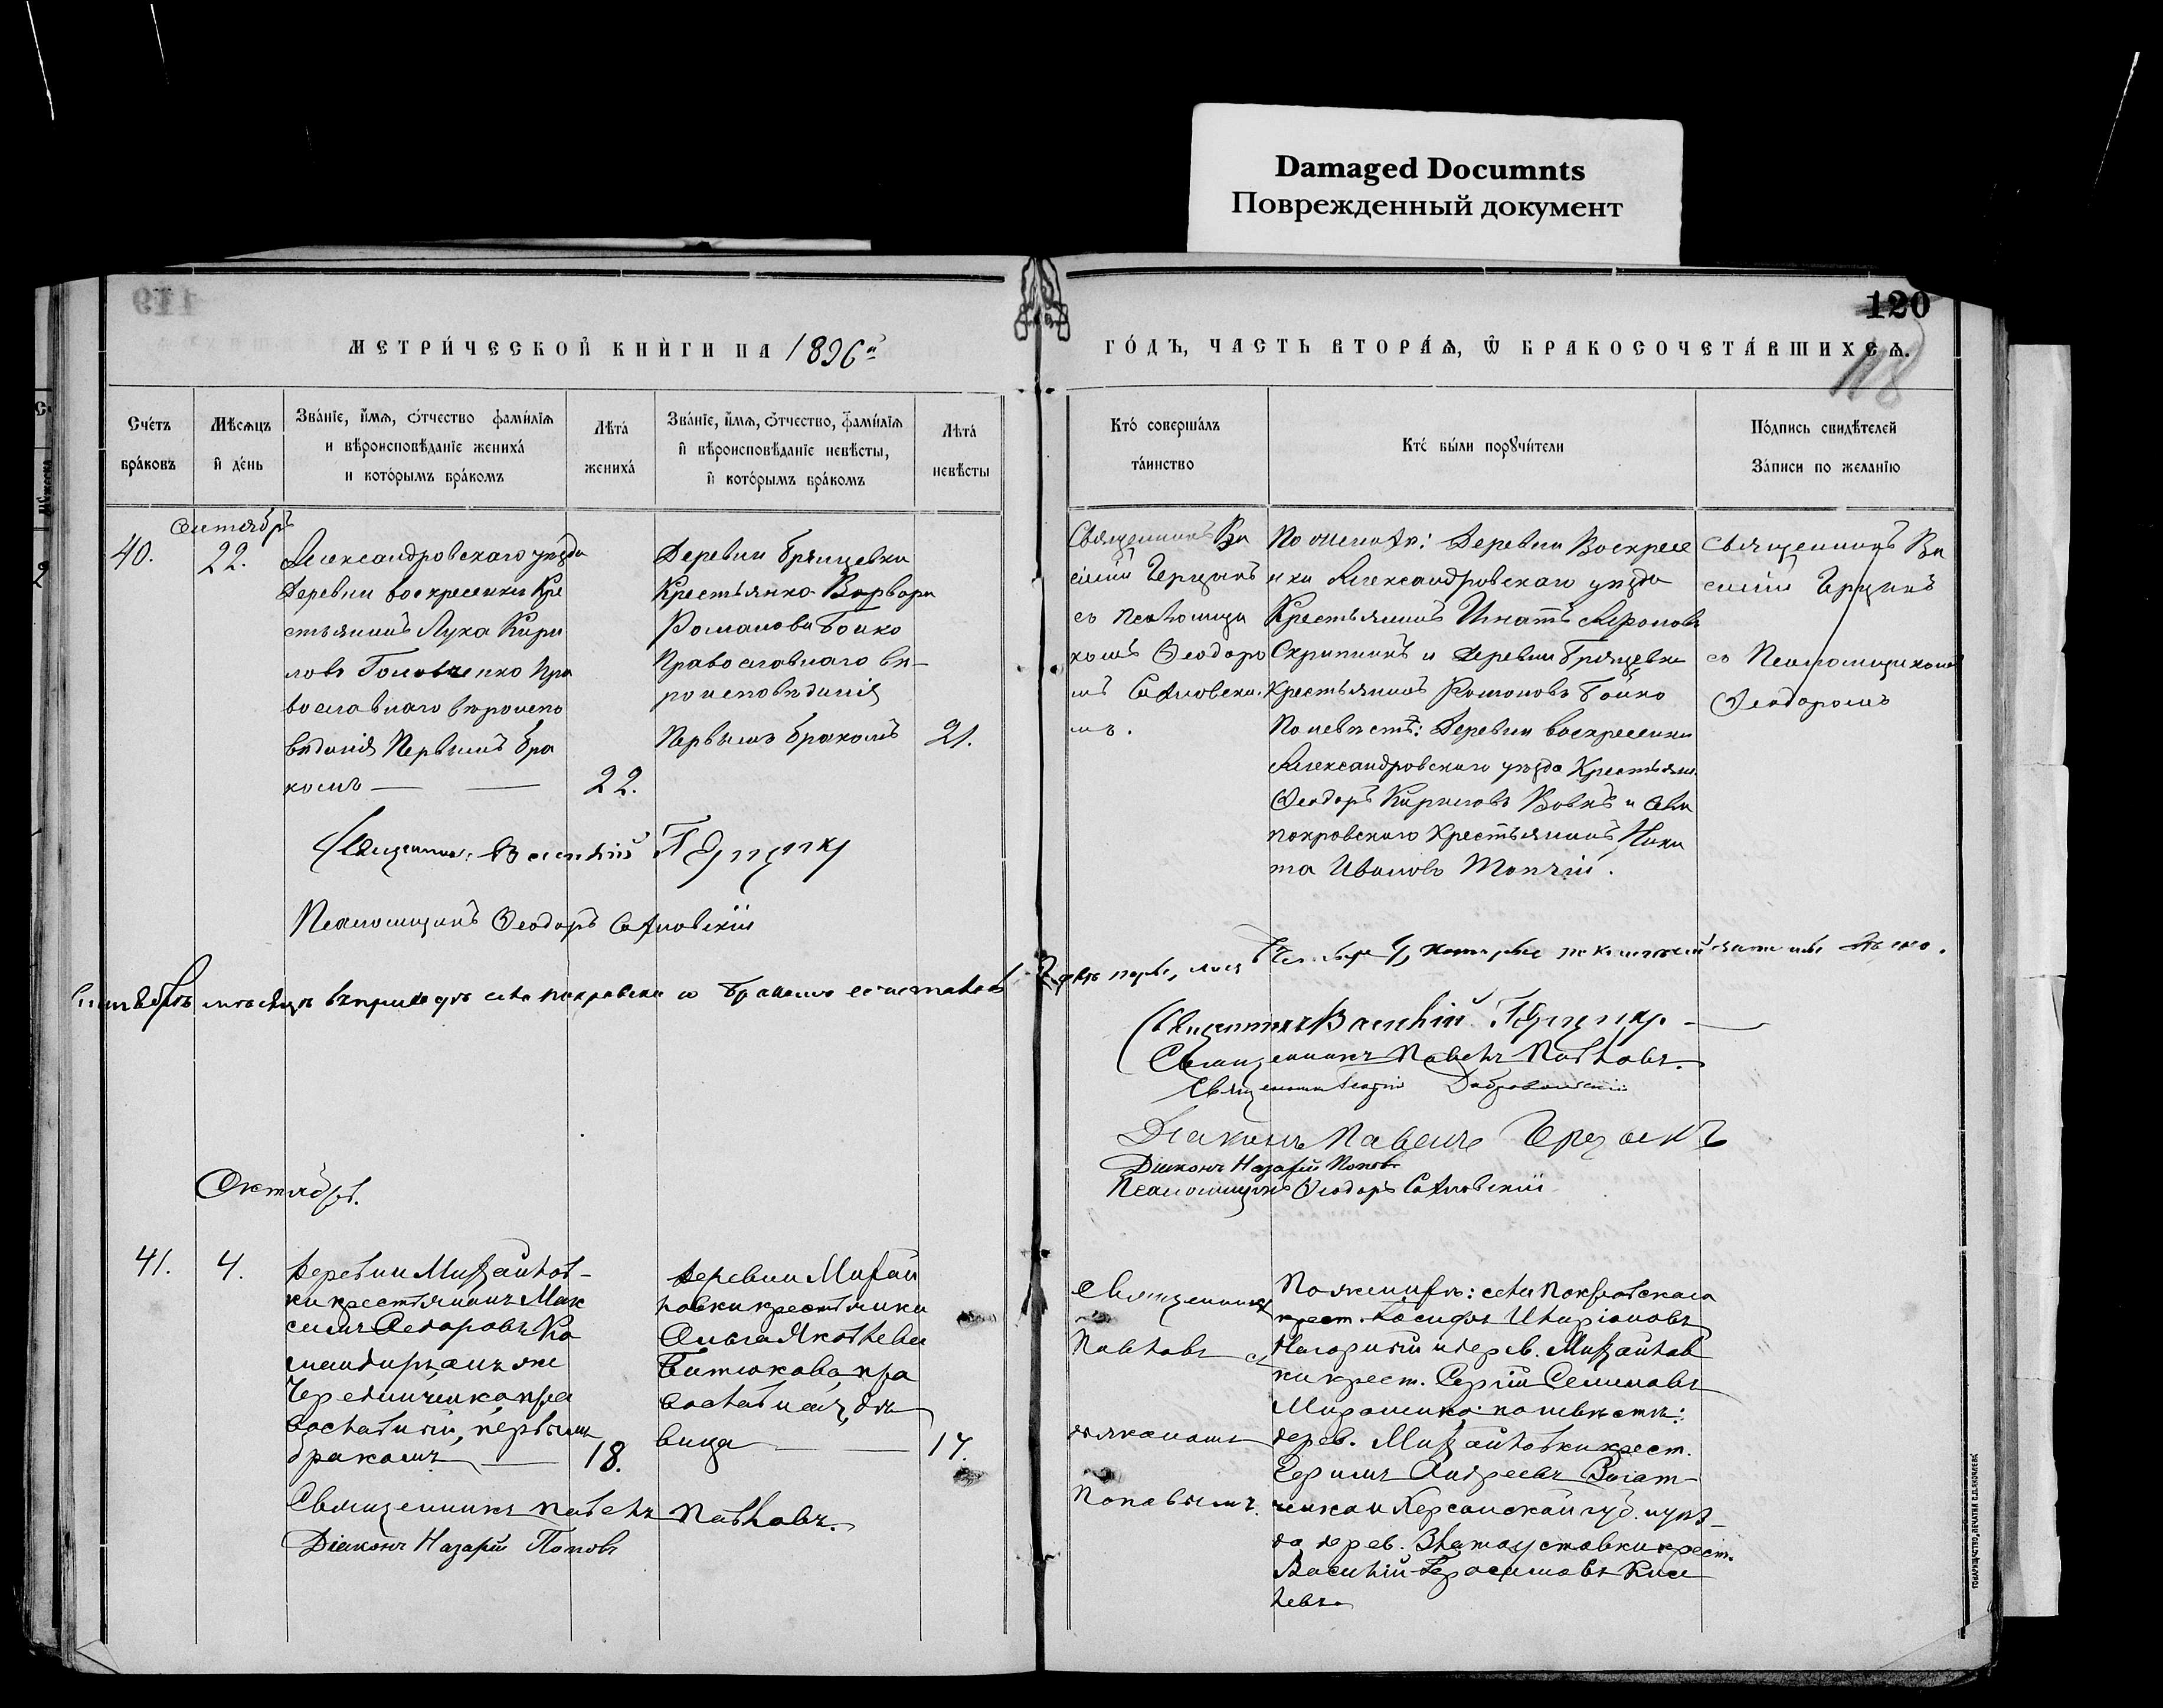 Damaged Documnts
Поврежденный документ
120
118
МЕТРИ́ЧЕСКОЙ КНИ́ГИ НА 1896й
ГО́ДЪ, ЧАСТЬ ВТОРА́Ѧ, Ѽ БРАКОСОЧЕТА́ВШИХСѦ.
Сче́тъ
бра́ковъ
Мѣ́сѧцъ
и҆ де́нь
Зва́нїе, и҆́мѧ, ѻ҆́тчество фами́лїѧ
и вѣроисповѣ́данїе жениха́
и кото́рымъ бра́комъ
Лѣта́
жениха́
Зва́нїе, и҆́мѧ, ѻ҆́тчество, фами́лїѧ
и҆ вѣроисповѣ́данїе невѣ́сты,
и҆ кото́рымъ бра́комъ
Лѣта́
невѣ́сты
Кто́ соверша́лъ
та́инство
Кто́ бы́ли порꙋчи́тели
По́дпись свидѣ́телей
За́писи по жела́нїю
Сентябрь
40.
22.
Александровскаго уѣзда
Деревни Воскресенки Кре
стьянинъ Лука Кири
ловъ Головченко Пра
вославнаго вѣроиспо
вѣданія Первымъ бра
комъ
22.
Деревни Грянцевки
Крестьянка Варвара
Романова Бойко
Православнаго вѣ-
роисповѣданія
Первымъ бракомъ
21.
Священникъ Ва
силій
съ Псаломщи
комъ Ѳеодоро
мъ
мъ.
По женихѣ: Деревни Воскресе
нки Александровскаго уѣзда
Крестьянинъ Игнатъ
Скрипникъ и Деревни
Крестьянинъ Романовъ Бойко
По невѣстѣ: Деревни Воскресенки
Александровскаго уѣзда Крестьян.
Ѳеодоръ Кириловъ Вовкъ и села
Покровскаго Крестьянинъ Ники
та Ивановъ Топчій.
Священникъ Ва
силій
съ Псаломщикомъ
Ѳеодоромъ
Священникъ Василій
Псаломщикъ Ѳеодоръ
мѣсяцѣ въ приходѣ села Покровскаго
Священникъ Василій
Священникъ Павелъ Павловъ.
Священникъ
Діаконъ Павелъ
Діаконъ Назарій Поповъ
Псаломщикъ Ѳеодоръ
Октябрь.
41.
4.
Деревни Михайлов-
ки крестьянинъ Мак
симъ Ѳедоровъ Ко
мандиръ, онъ же
Чередниченко, пра
вославный, первымъ
бракомъ
18.
Деревни Михай
ловки крестьянка
Ольга Яковлева
Битюкова, пра
вославная, дѣ
вица
17.
Священникъ
Павловъ съ
діакономъ
Поповымъ.
По женихѣ: села Покровскаго
крест. Іосифъ Иларіоновъ
Нагорный и дерев. Михайлов
ки крест. Сергій Семеновъ
Мирошенко: по невѣстѣ:
дерев. Михайловки крест.
Андреевъ
и Херсонской губ. и уѣз-
да дерев. Златоустовки крест.
Василій Герасимовъ Кисе
левъ.
Священникъ Павелъ Павловъ.
Діаконъ Назарій Поповъ